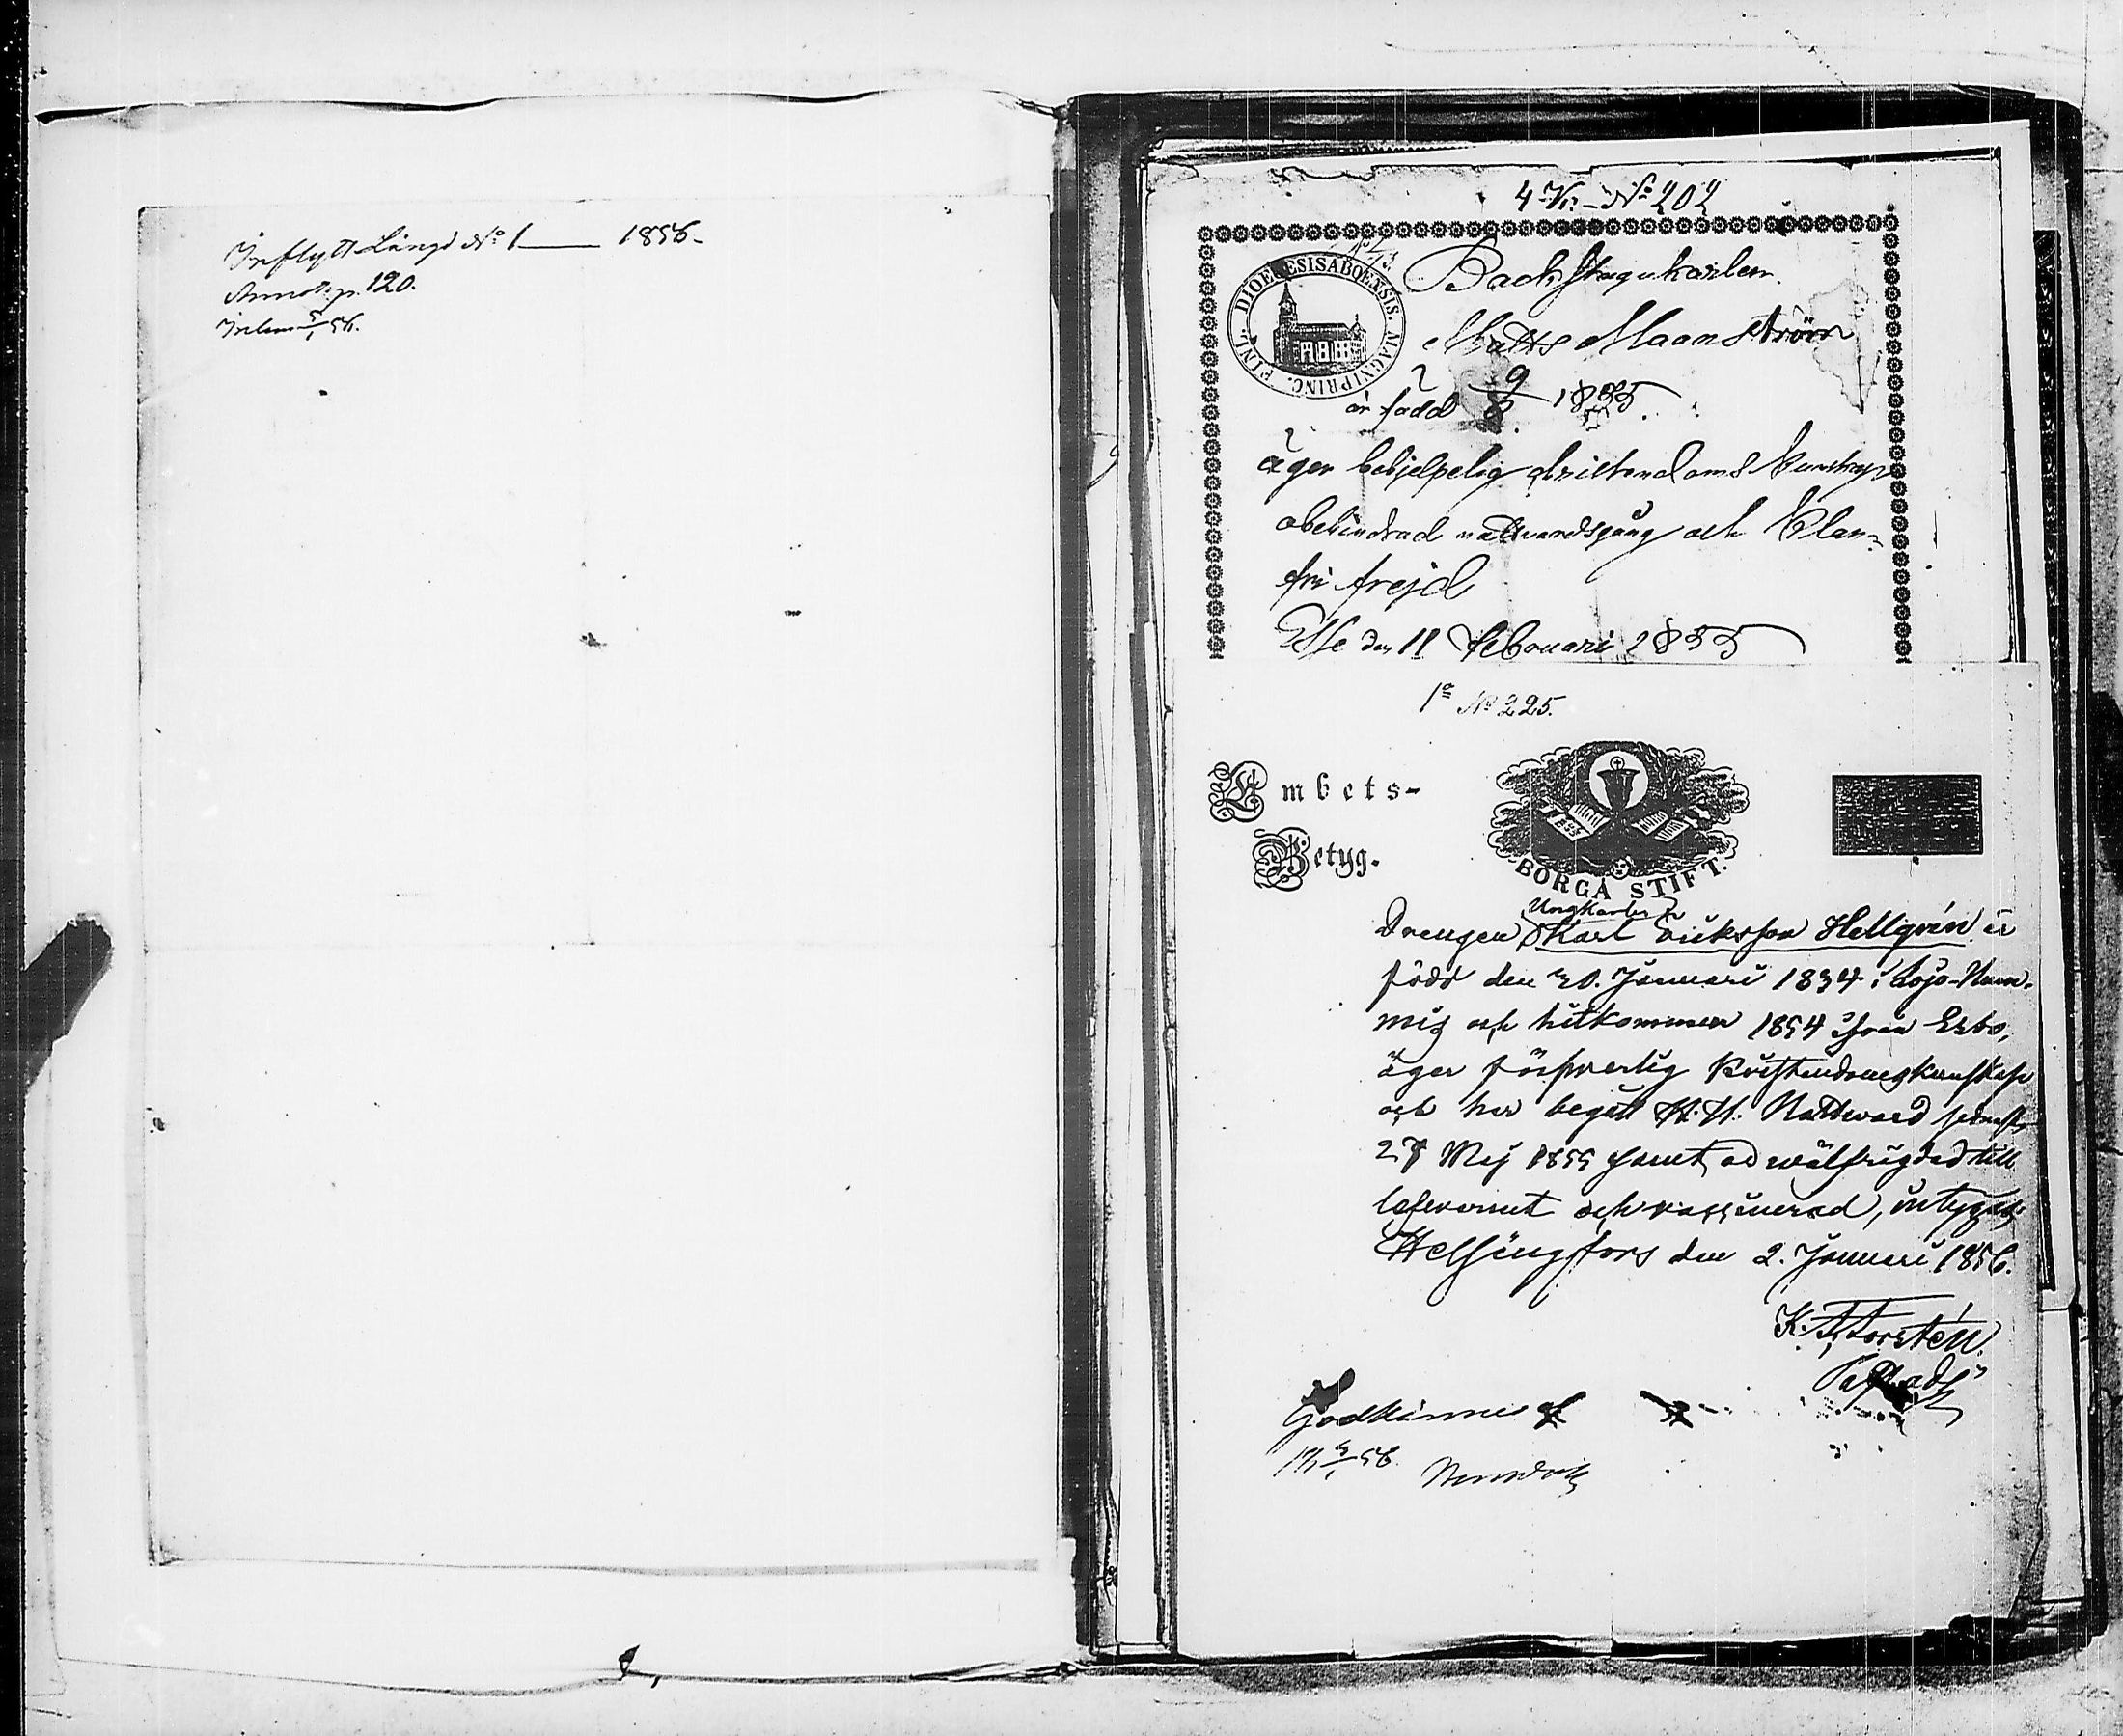 Inflytt Längd No 1 — 1856.
Annot. p. 120.
Inlem 5/1 56.
4 Kv. No 202
DIOECESIS ABOENSIS. MAGNI PRINC. FINL.
Backstugukarlen
Matts Maanström
är född 9/8 1835.
äger behjelpelig christendoms kunskap
obehindrad nattvardsgång och klan-
fri frejd
Esse den 11 februari 1855
1o No 225.
Embets-
Betyg.
1855
BORGÅ STIFT.
Ungkarlen
Drengen Karl Eriksson Hellqvén är
född den 20. Januari 1834 i Lojo-Num-
mis och hitkommen 1854 ifrån Esbo,
äger försvarlig Kristendomskunskap
och har begått H.H. Nattward senast
27 Maj 1855 samt, ad wälfrägdad till
lefvernet och vaccinerad, intygas.
Helsingfors den 2. Januari 1856.
K. F. Forstén.
Godkännes
5/1 56.